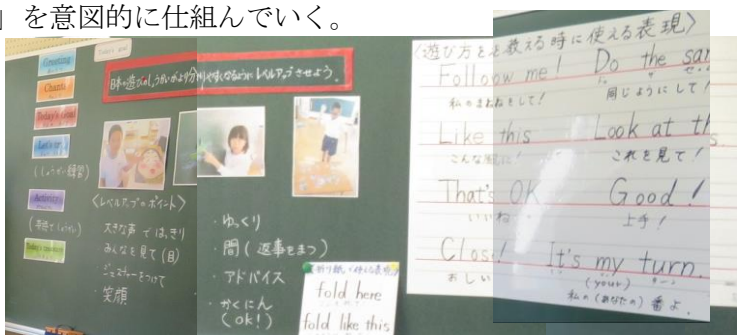 」を意図的に仕組んでいく。
Today's goal
Greeting
Chants
Today's Goal
Let's try
(しょうかい練習)
Activity
(英語でしょうかい)
日本の遊びの
しょうかいがより分かりやすくなるようにレベルアップさせよう。
〈レベルアップのポイント〉
大きな声ではっきり
みんなを見て(目)
ジェスチャーをつけて
・笑顔
・ゆっくり
・間(返事をまつ)
・アドバイス
・かくにん
(ok!)
fold here
fold like this
〈遊び方を教える時に使える表現〉
Follow me!
私のまねをして!
Do the sa
同じようにして!
Like this
こんな風に!
Look at th
これを見て!
That's OK
いいね
Good!
上手!
Close!
おしい
It's my turn.
(your)
私の(あなたの)番よ。